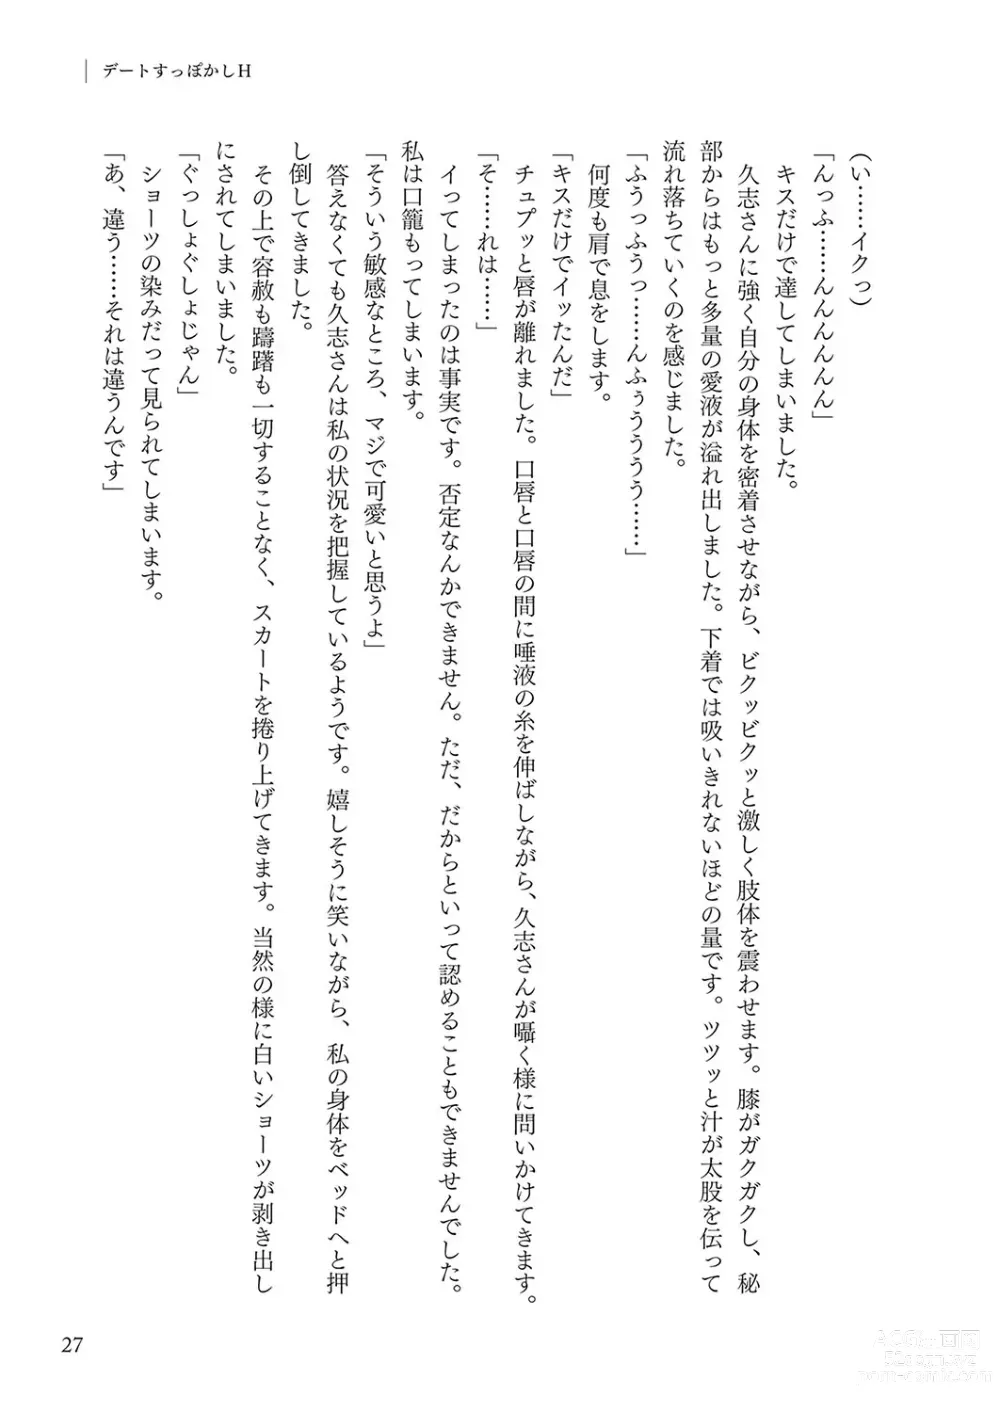 デートすっぽかしH
(い……イクっ)
「んっふ……んんんんんん」
キスだけで達してしまいました。
久志さんに強く自分の身体を密着させながら、ビクッビクッと激しく肢体を震わせます。膝がガクガクし、秘
部からはもっと多量の愛液が溢れ出しました。下着では吸いきれないほどの量です。ツツッと汁が太股を伝って
流れ落ちていくのを感じました。
「ふうっふうっ……んふぅうううう……」
何度も肩で息をします。
「キスだけでイッたんだ」
チュプッと唇が離れました。口唇と口唇の間に唾液の糸を伸ばしながら、久志さんが囁く様に問いかけてきます。
「そ……れは……」
イってしまったのは事実です。否定なんかできません。ただ、だからといって認めることもできませんでした。
私は口籠もってしまいます。
「そういう敏感なところ、マジで可愛いと思うよ」
答えなくても久志さんは私の状況を把握しているようです。嬉しそうに笑いながら、私の身体をベッドへと押
し倒してきました。
その上で容赦も躊躇も一切することなく、スカートを捲り上げてきます。当然の様に白いショーツが剥き出し
にされてしまいました。
「ぐっしょぐしょじゃん」
ショーツの染みだって見られてしまいます。
「あ、違う……それは違うんです」
27